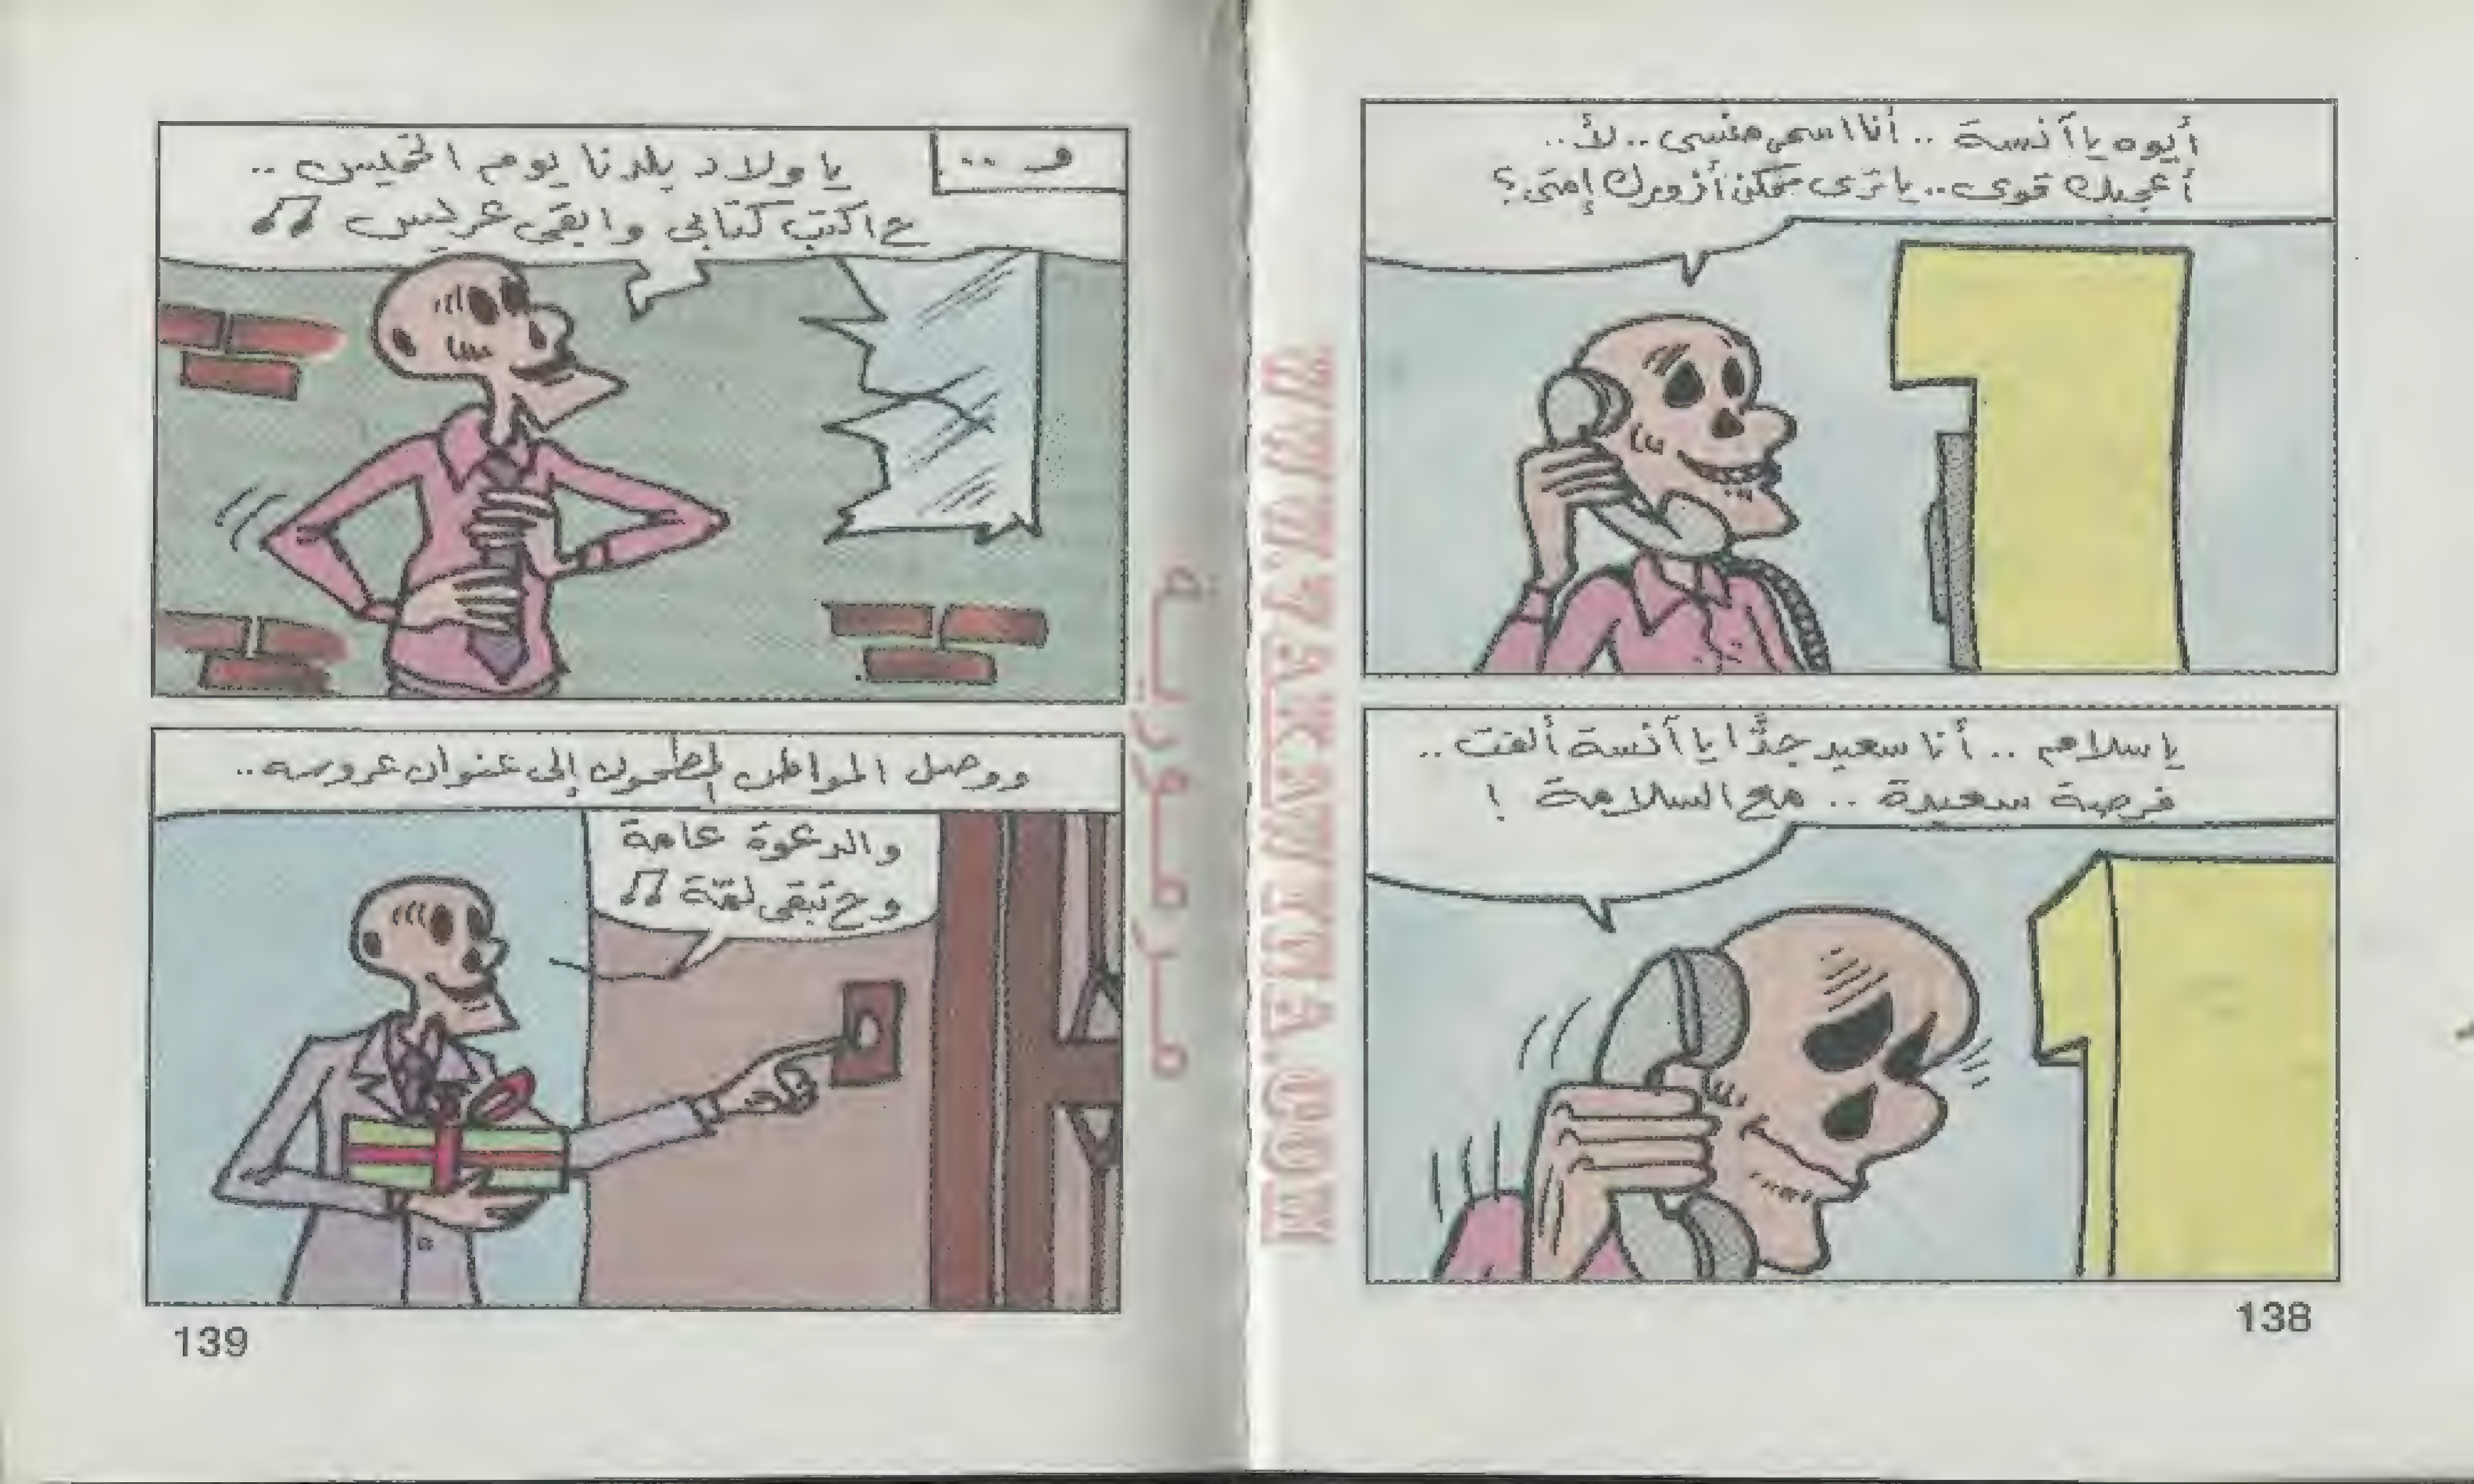 أيوه يا آنسة .. أنا اسمى منسى .. لأ ..
أعجبك قوى .. يا ترى ممكن أزورك إمتى ؟
يا سلام .. أنا سعيد جدًّا يا آنسة ألفت ..
فرصة سعيدة .. مع السلامة !
138
و ..
يا ولاد بلدنا يوم الخميس ..
ح اكتب كتابى وابقى عريس
ووصل المواطن المطحون إلى عنوان عروسه ..
والدعوة عامة
وح تبقى لمة
139
مرمورية